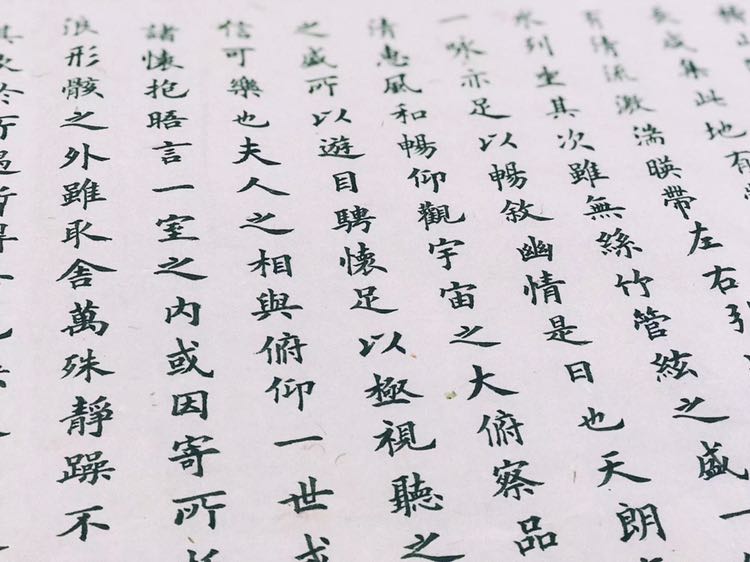 稽山
長咸集此地有
有清流激湍暎帶左右引
水列坐其次雖無絲竹管絃之盛一
一詠亦足以暢敘幽情是日也天朗
清惠風和暢仰觀宇宙之大俯察品
之盛所以遊目騁懷足以極視聽之
信可樂也夫人之相與俯仰一世或
諸懷抱晤言一室之内或因寄所
浪形骸之外雖取舍萬殊靜躁不
其欣於所遇暫得